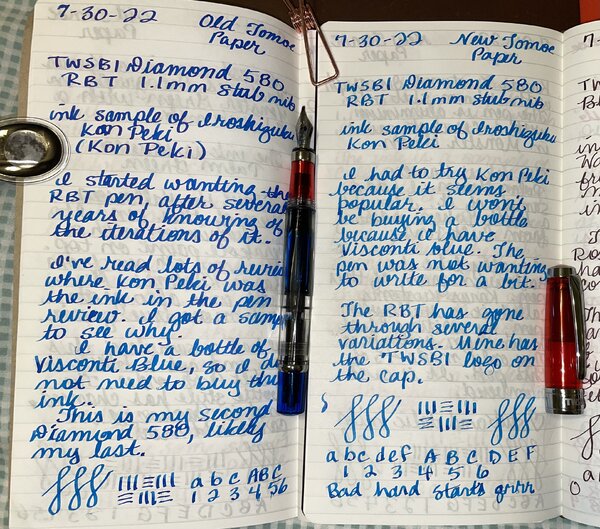 7-30-22 Old Tomoe
Paper
TWSBI Diamond 580
RBT 1.1mm Stub nib
ink sample of Iroshizuku
Kon Peki
(Kon Peki)
I started wanting the
RBT pen, after several
years of knowing of
the iterations of it.
I've read lots of
where Kon Peki was
the ink in the pen
review. I got a
to see why.
I have a bottle of
Visconti Blue, so I
not need to buy
ink.
This is my second
Diamond 580, likely
my last.
a b c A B C
1 2 3 4 5 6
7-30-22 New Tomoe
Paper
TWSBI Diamond 580
RBT 1.1mm Stub nib
ink sample of Iroshizuku
Kon Peki
I had to try Kon Peki
because it seems
popular. I won't
be buying a bottle
because I have
Visconti blue. The
pen was not wanting
to write for a bit.
The RBT has gone
through several
variations. Mine has
the TWSBI logo on
the cap.
a b c d e f A B C D E F
1 2 3 4 5 6
Bad hard starts grrrr